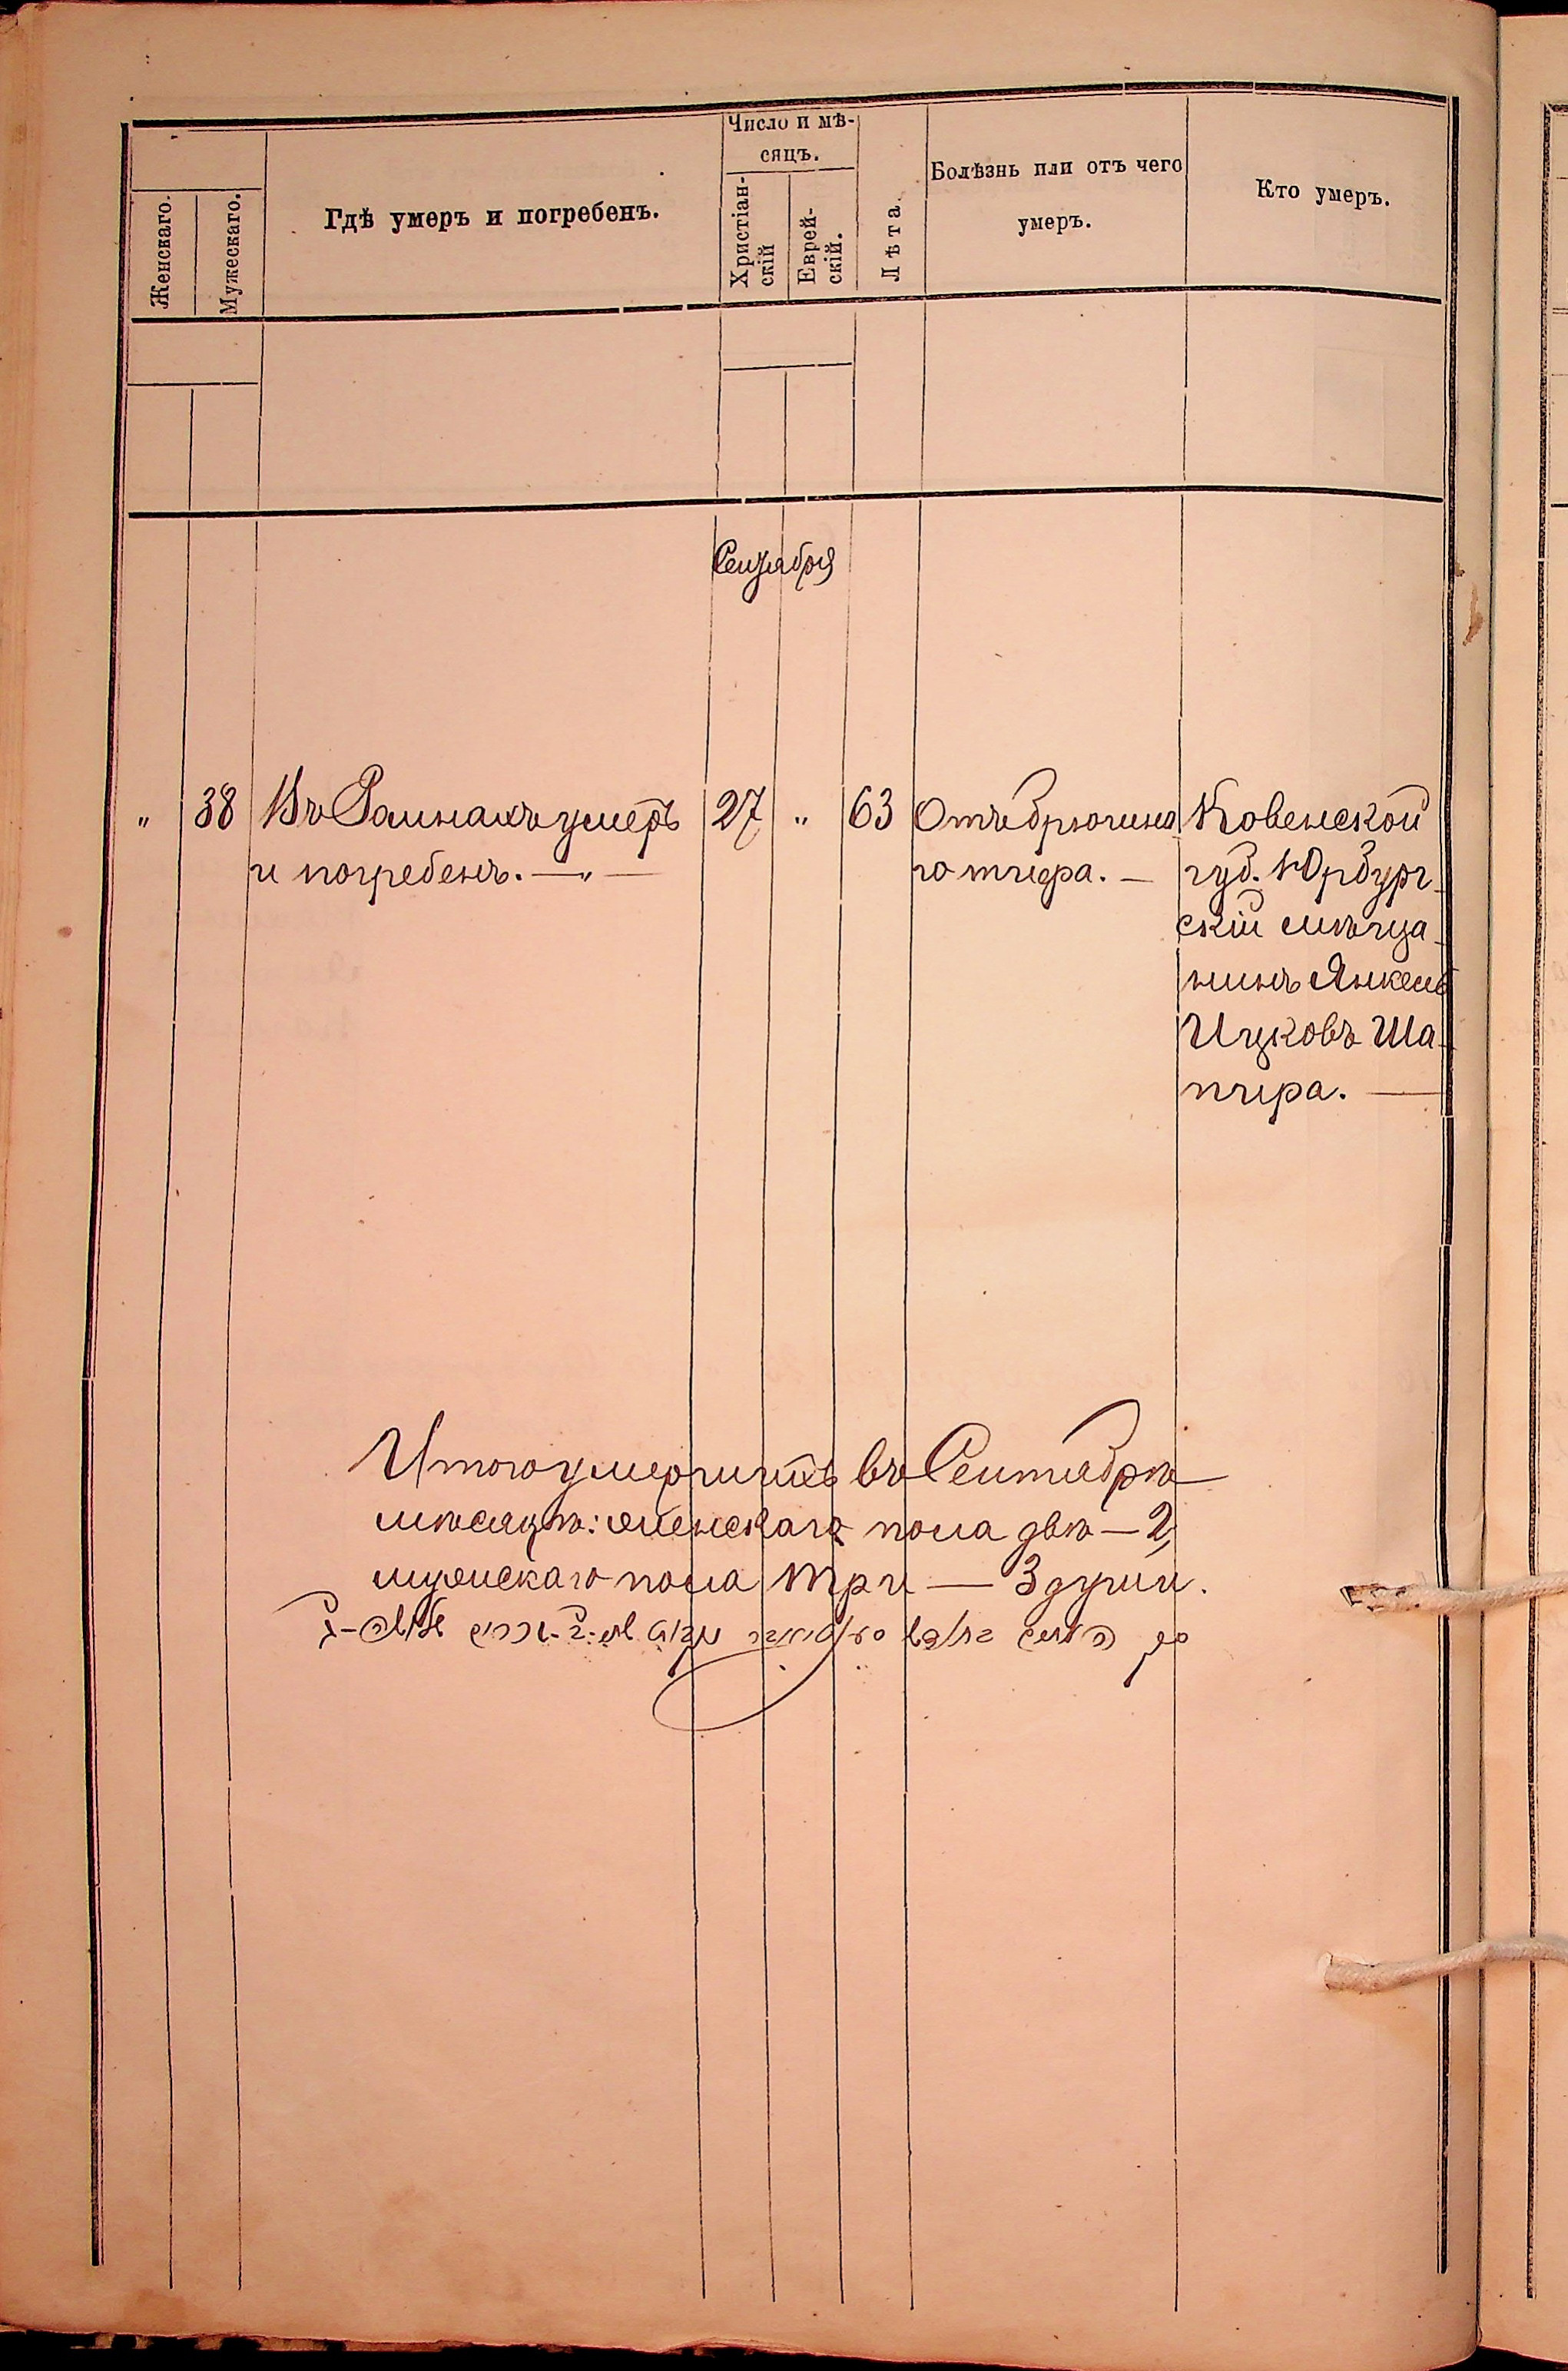 Женскаго.
Мужескаго.
Гдѣ умеръ и погребенъ.
Число и мѣ-
сяцъ.
Христіан-
скій
Еврей-
скій.
Лѣта.
Болѣзнь или отъ чего
умеръ.
Кто умеръ.
Сентября
" 38 Въ умеръ 27 " 63 Отъ брюшна Ковенской
и погребенъ. — " — го тифа. — губ. Юрбург-
скій мѣща-
нинъ Янкель
Ицковъ Ша-
пира. —
Итого умершихъ въ Сентябрѣ
мѣсяцѣ: женскаго пола двѣ — 2,
мужескаго пола три — 3 души.